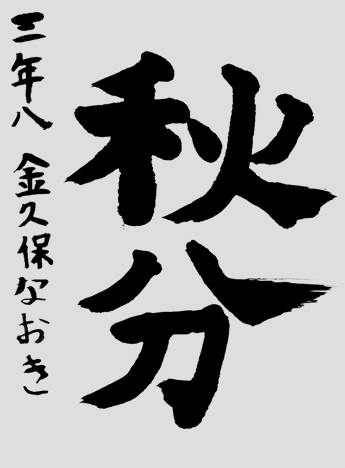 秋分
三年八 金久保なおき